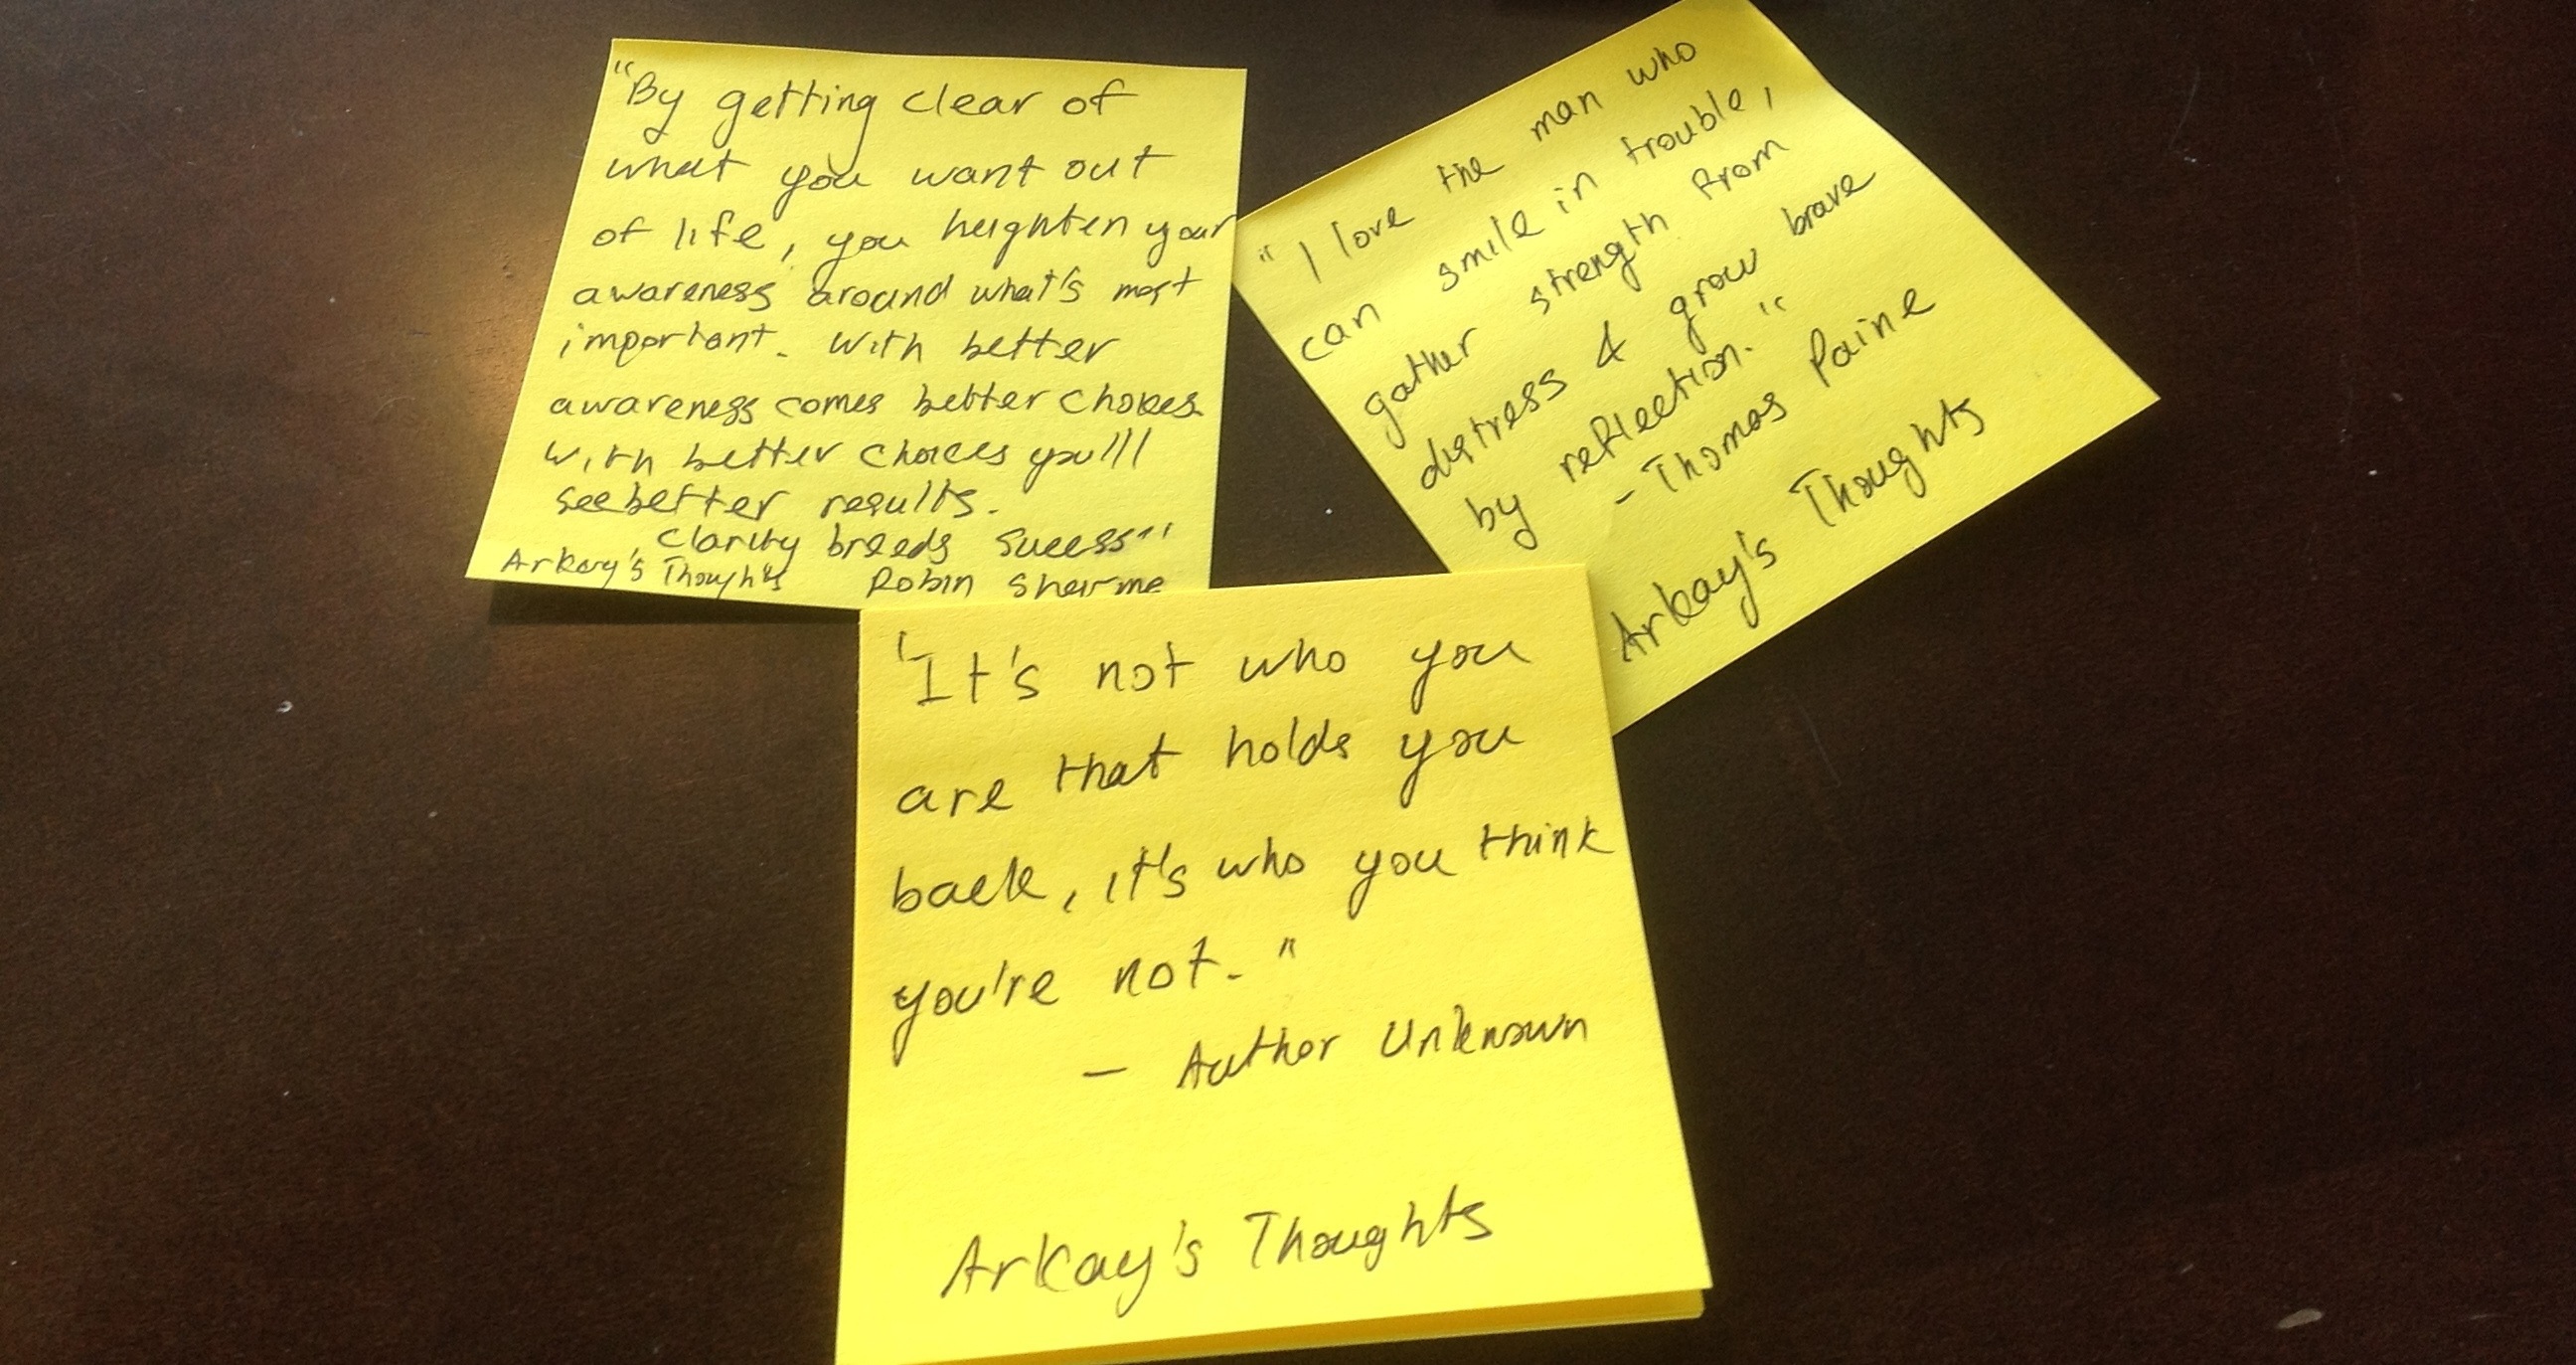 "By getting clear of
what you want out
of life, you heighten your
awareness around what's most
important. With better
awareness comes better choices
with better choices you'll
see better results.
Clarity breeds sucess"
Arkay's Thoughts Robin Sharma
"I love the man who
can smile in trouble,
gather strength from
distress & grow brave
by reflection."
- Thomas Paine
Arkay's Thoughts
"It's not who you
are that holds you
back, it's who you think
you're not."
- Author Unknown
Arkay's Thoughts